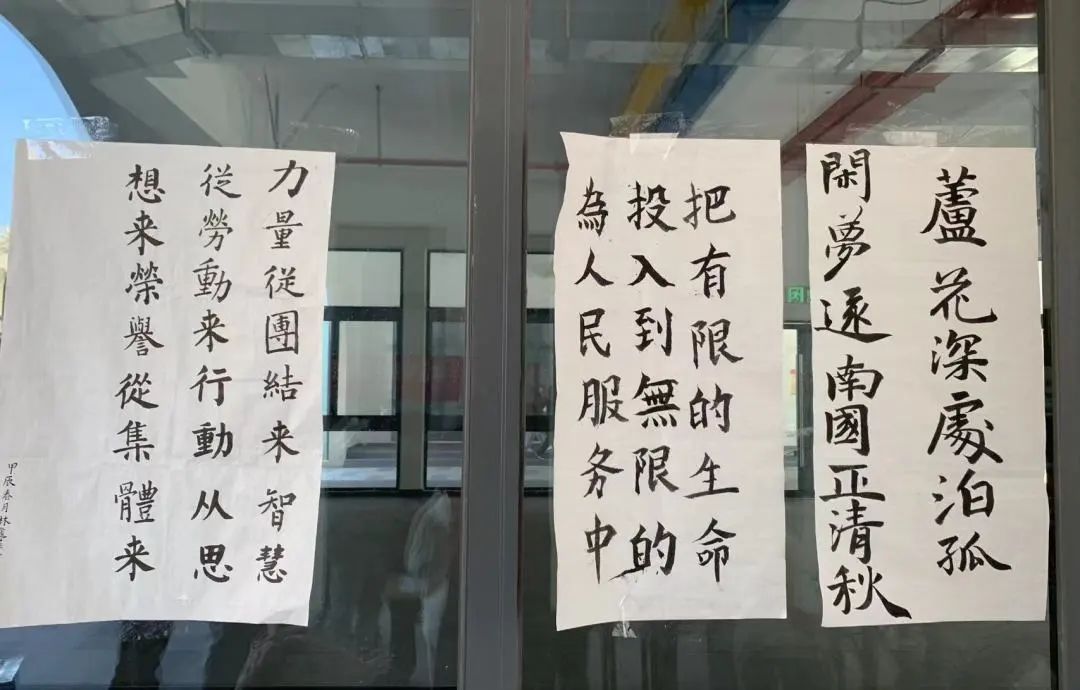 蘆花深處泊孤
閑夢逐南國正清秋
把有限的生命
投入到無限的
為人民服务中
力量從團結来智慧
從勞動来行動从思
想来榮譽從集體来
甲辰春月林